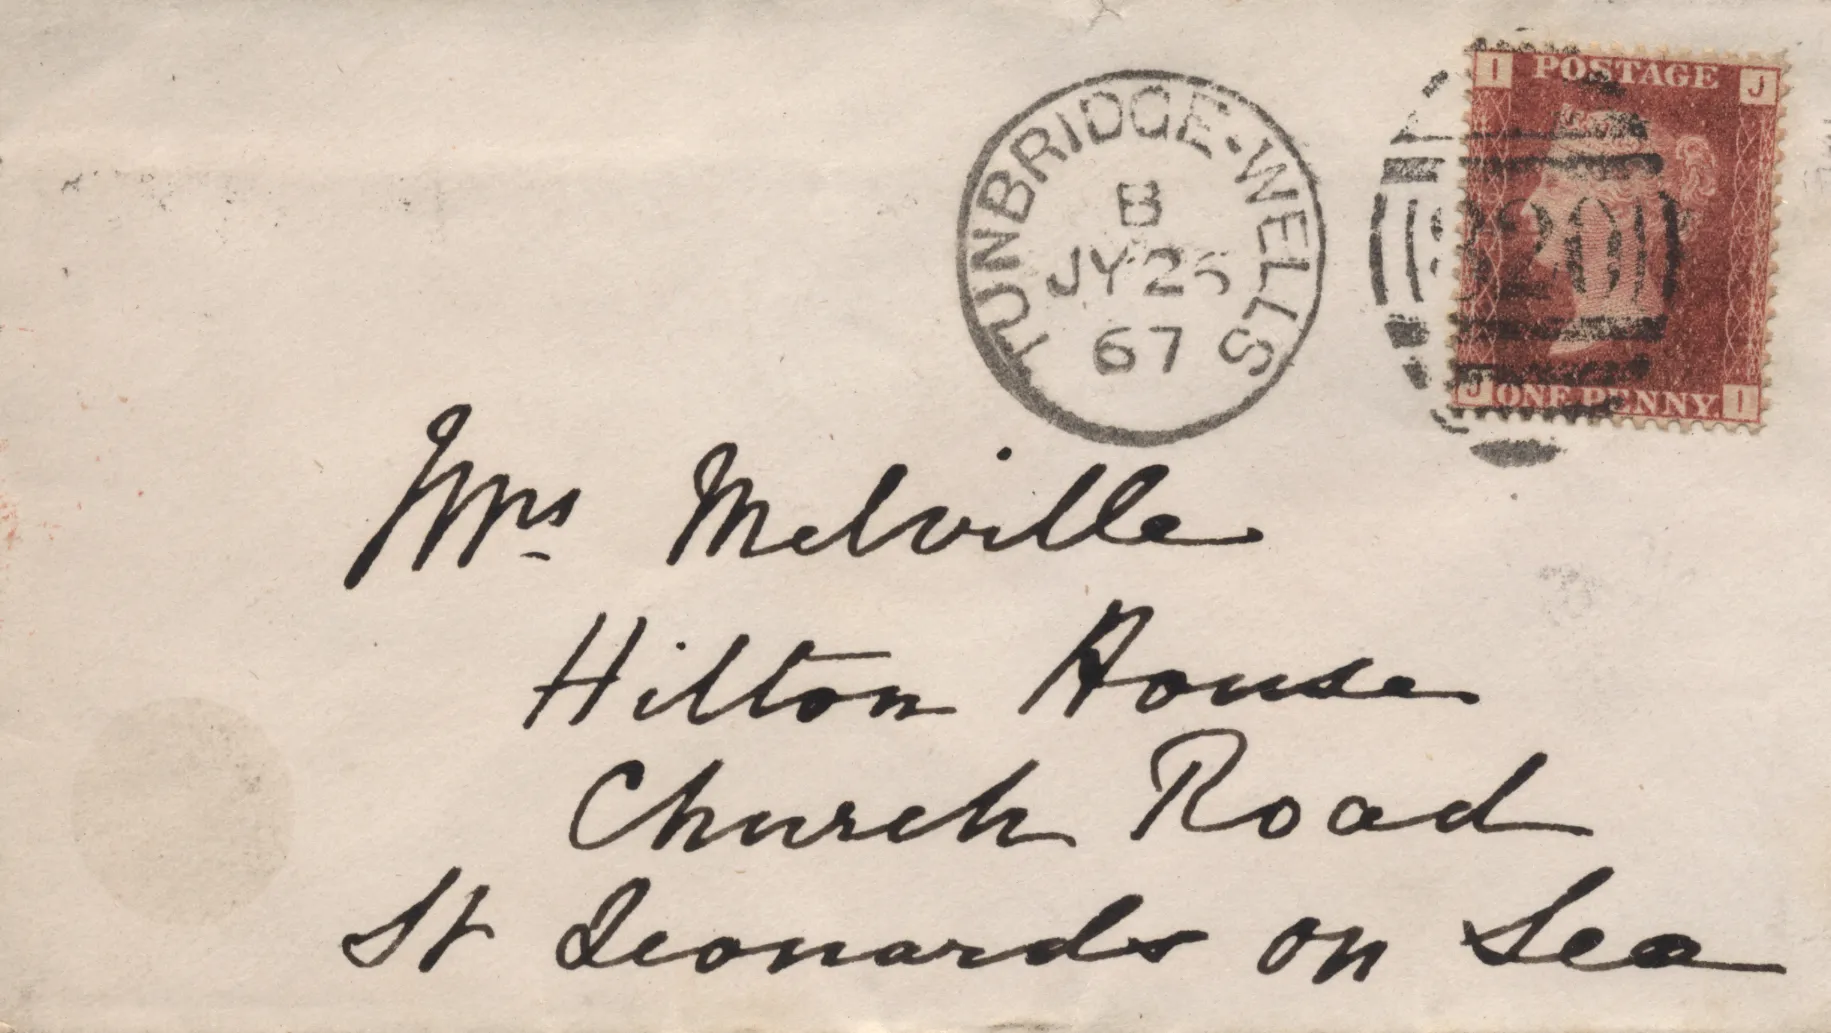 I POSTAGE J
TUNBRIDGE-WELLS
B
JY 25
67
820
J ONE PENNY I
Mrs Melville
Hilton House
Church Road
St Leonards on Sea